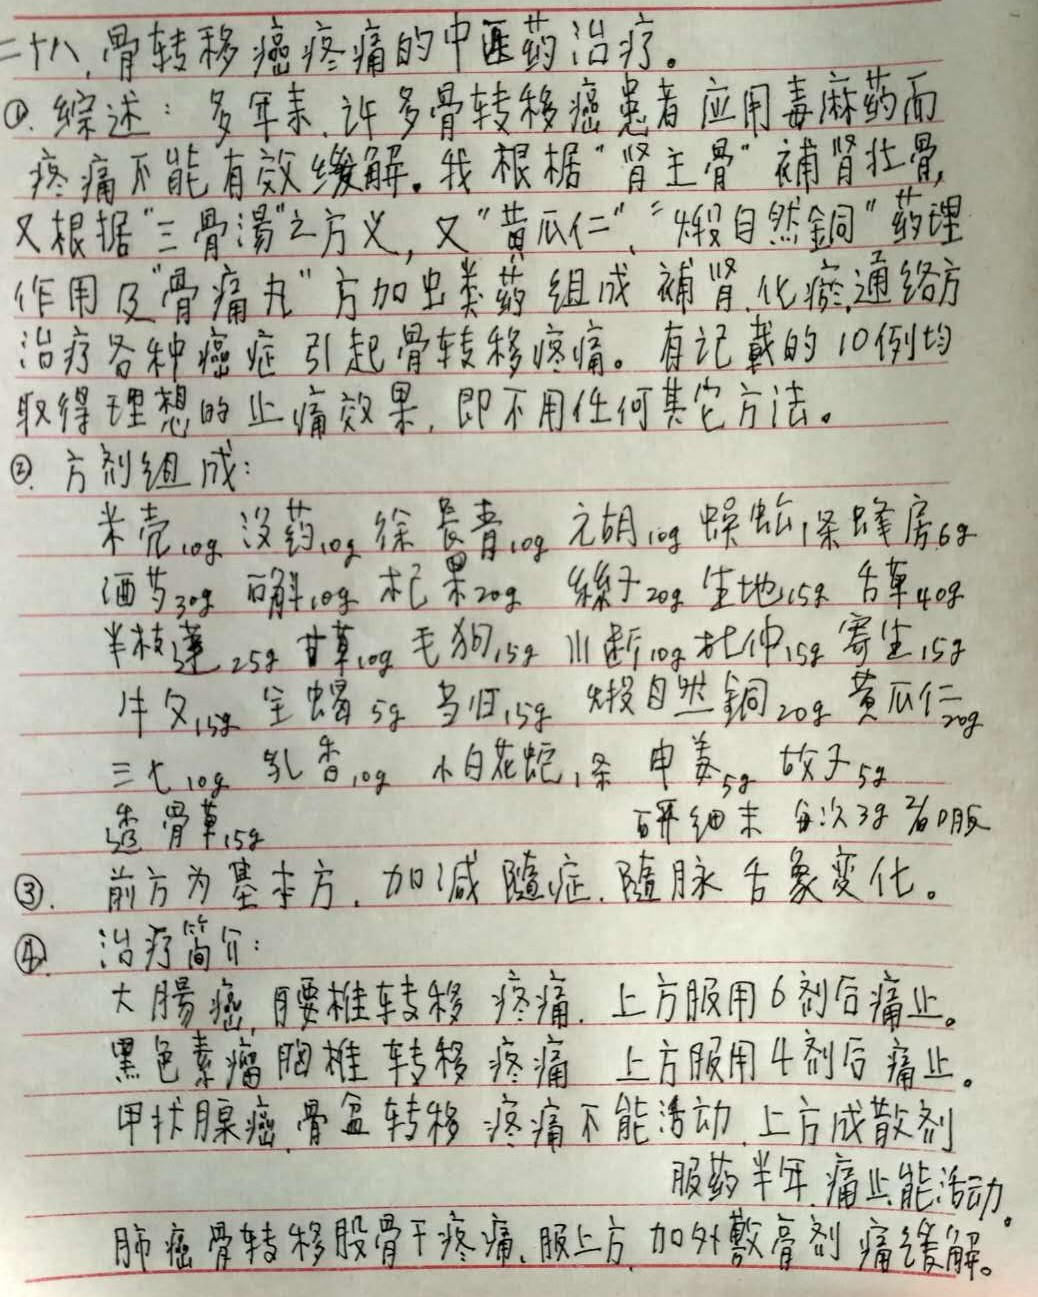 二十八.骨转移癌疼痛的中医药治疗。
①.综述：多年来.许多骨转移癌患者应用毒麻药而
疼痛不能有效缓解。我根据"肾主骨"補肾壮骨,
又根据"三骨湯"之方义,又"黄瓜仁"、"煅自然銅"药理
作用及"骨痛丸"方加虫类药组成補肾.化瘀.通络方
治疗各种癌症引起骨转移疼痛。有记載的10例均
取得理想的止痛效果,即不用任何其它方法。
②.方剂组成:
米壳10g 没药10g 徐長青10g 元胡10g 蜈蚣1条 蜂房6g
酒芍30g 石斛10g 杞果20g 絲子20g 生地15g 舌草40g
半枝蓮25g 甘草10g 毛狗15g 川断10g 杜仲15g 寄生15g
牛夕15g 全蝎5g 当归15g 煅自然銅20g 黄瓜仁20g
三七10g 乳香10g 小白花蛇1条 申姜5g 故子5g
透骨草15g 研细末 每次3g 2/日口服
③.前方为基本方.加减隨症.隨脉舌象变化。
④.治疗简介:
大腸癌.腰椎转移疼痛.上方服用6剂后痛止。
黑色素瘤胸椎转移疼痛 上方服用4剂后痛止。
甲状腺癌.骨盆转移疼痛不能活动.上方成散剂
服药半年.痛止能活动。
肺癌骨转移股骨干疼痛.服上方.加外敷膏剂痛缓解。